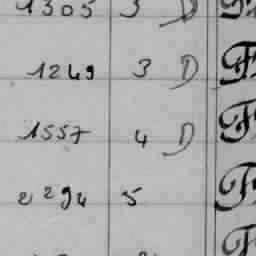 1305 3 D F
1249 3 D F
1557 4 D F
2294 5 F